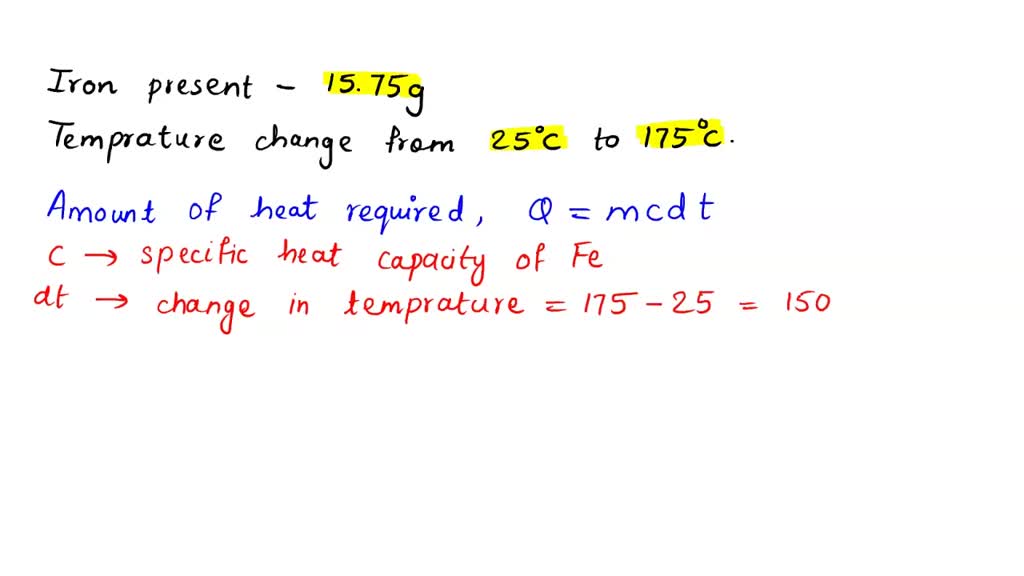 Iron present - 15.75g
Temprature change from 25°C to 175°C.
Amount of heat required, Q = mcdt
C → specific heat capacity of Fe
dt → change in temprature = 175 - 25 = 150